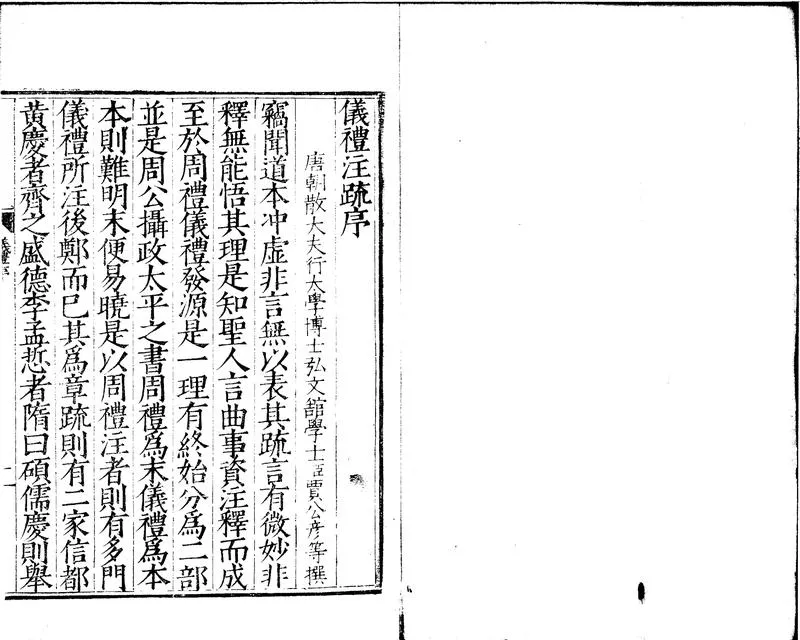 儀禮注疏序
唐朝散大夫行太學博士弘文舘學士臣賈公彦等撰
竊聞道本冲虛非言無以表其疏言有微妙非
釋無能悟其理是知聖人言曲事資注釋而成
至於周禮儀禮發源是一理有終始分爲二部
並是周公攝政太平之書周禮爲末儀禮爲本
本則難明末便易曉是以周禮注者則有多門
儀禮所注後鄭而已其爲章疏則有二家信都
黄慶者齊之盛德李孟悊者隋曰碩儒慶則舉